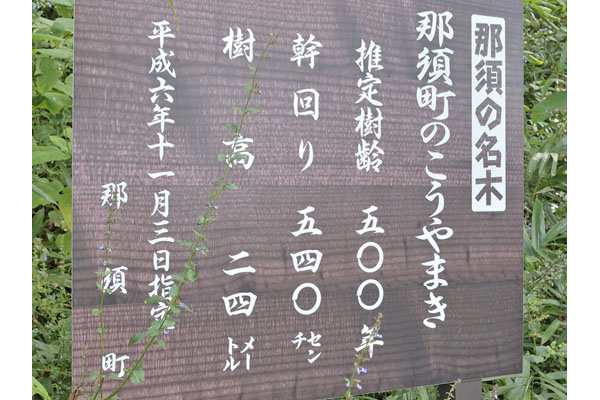 那須の名木
那須町のこうやまき
推定樹齢 五〇〇年
幹回り 五四〇センチ
樹高 二四メートル
平成六年十一月三日指定
那須町